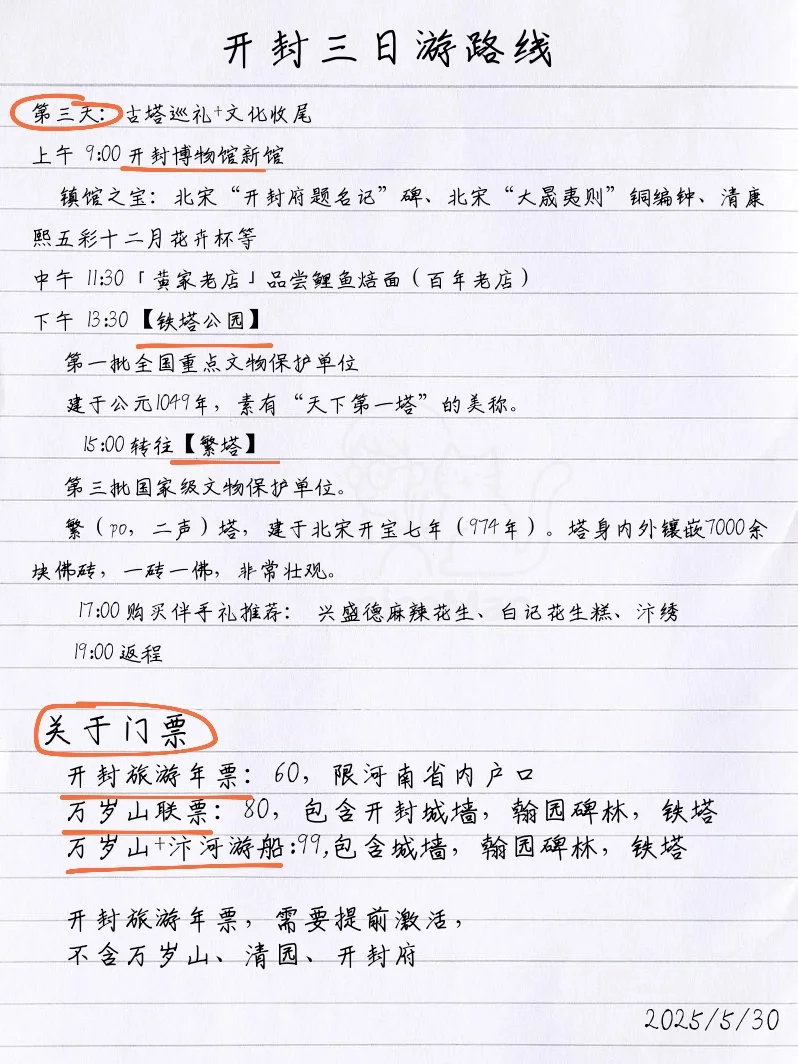 开封三日游路线
第三天：古塔巡礼+文化收尾
上午 9:00 开封博物馆新馆
镇馆之宝：北宋“开封府题名记”碑、北宋“大晟夷则”铜编钟、清康
熙五彩十二月花卉杯等
中午 11:30「黄家老店」品尝鲤鱼焙面（百年老店）
下午 13:30【铁塔公园】
第一批全国重点文物保护单位
建于公元1049年，素有“天下第一塔”的美称。
15:00 转往【繁塔】
第三批国家级文物保护单位。
繁（po，二声）塔，建于北宋开宝七年（974年）。塔身内外镶嵌7000余
块佛砖，一砖一佛，非常壮观。
17:00 购买伴手礼推荐： 兴盛德麻辣花生、白记花生糕、汴绣
19:00 返程
关于门票
开封旅游年票：60，限河南省内户口
万岁山联票：80，包含开封城墙，翰园碑林，铁塔
万岁山+汴河游船:99,包含城墙，翰园碑林，铁塔
开封旅游年票，需要提前激活，
不含万岁山、清园、开封府
2025/5/30